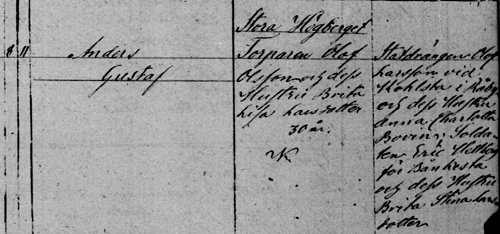 8 11
Anders
Gustaf
Stora Högberget
Torparen Olof
Olsson och dess
Hustru Brita
Lisa Larsdotter
30 år.
Stalldrängen Olof
Larsson vid
i Råby
och dess Hustru
Anna Charlotta
Bovin; Solda-
ten Eric
för Bånkesta
och dess Hustru
Brita Stina Lars-
dotter